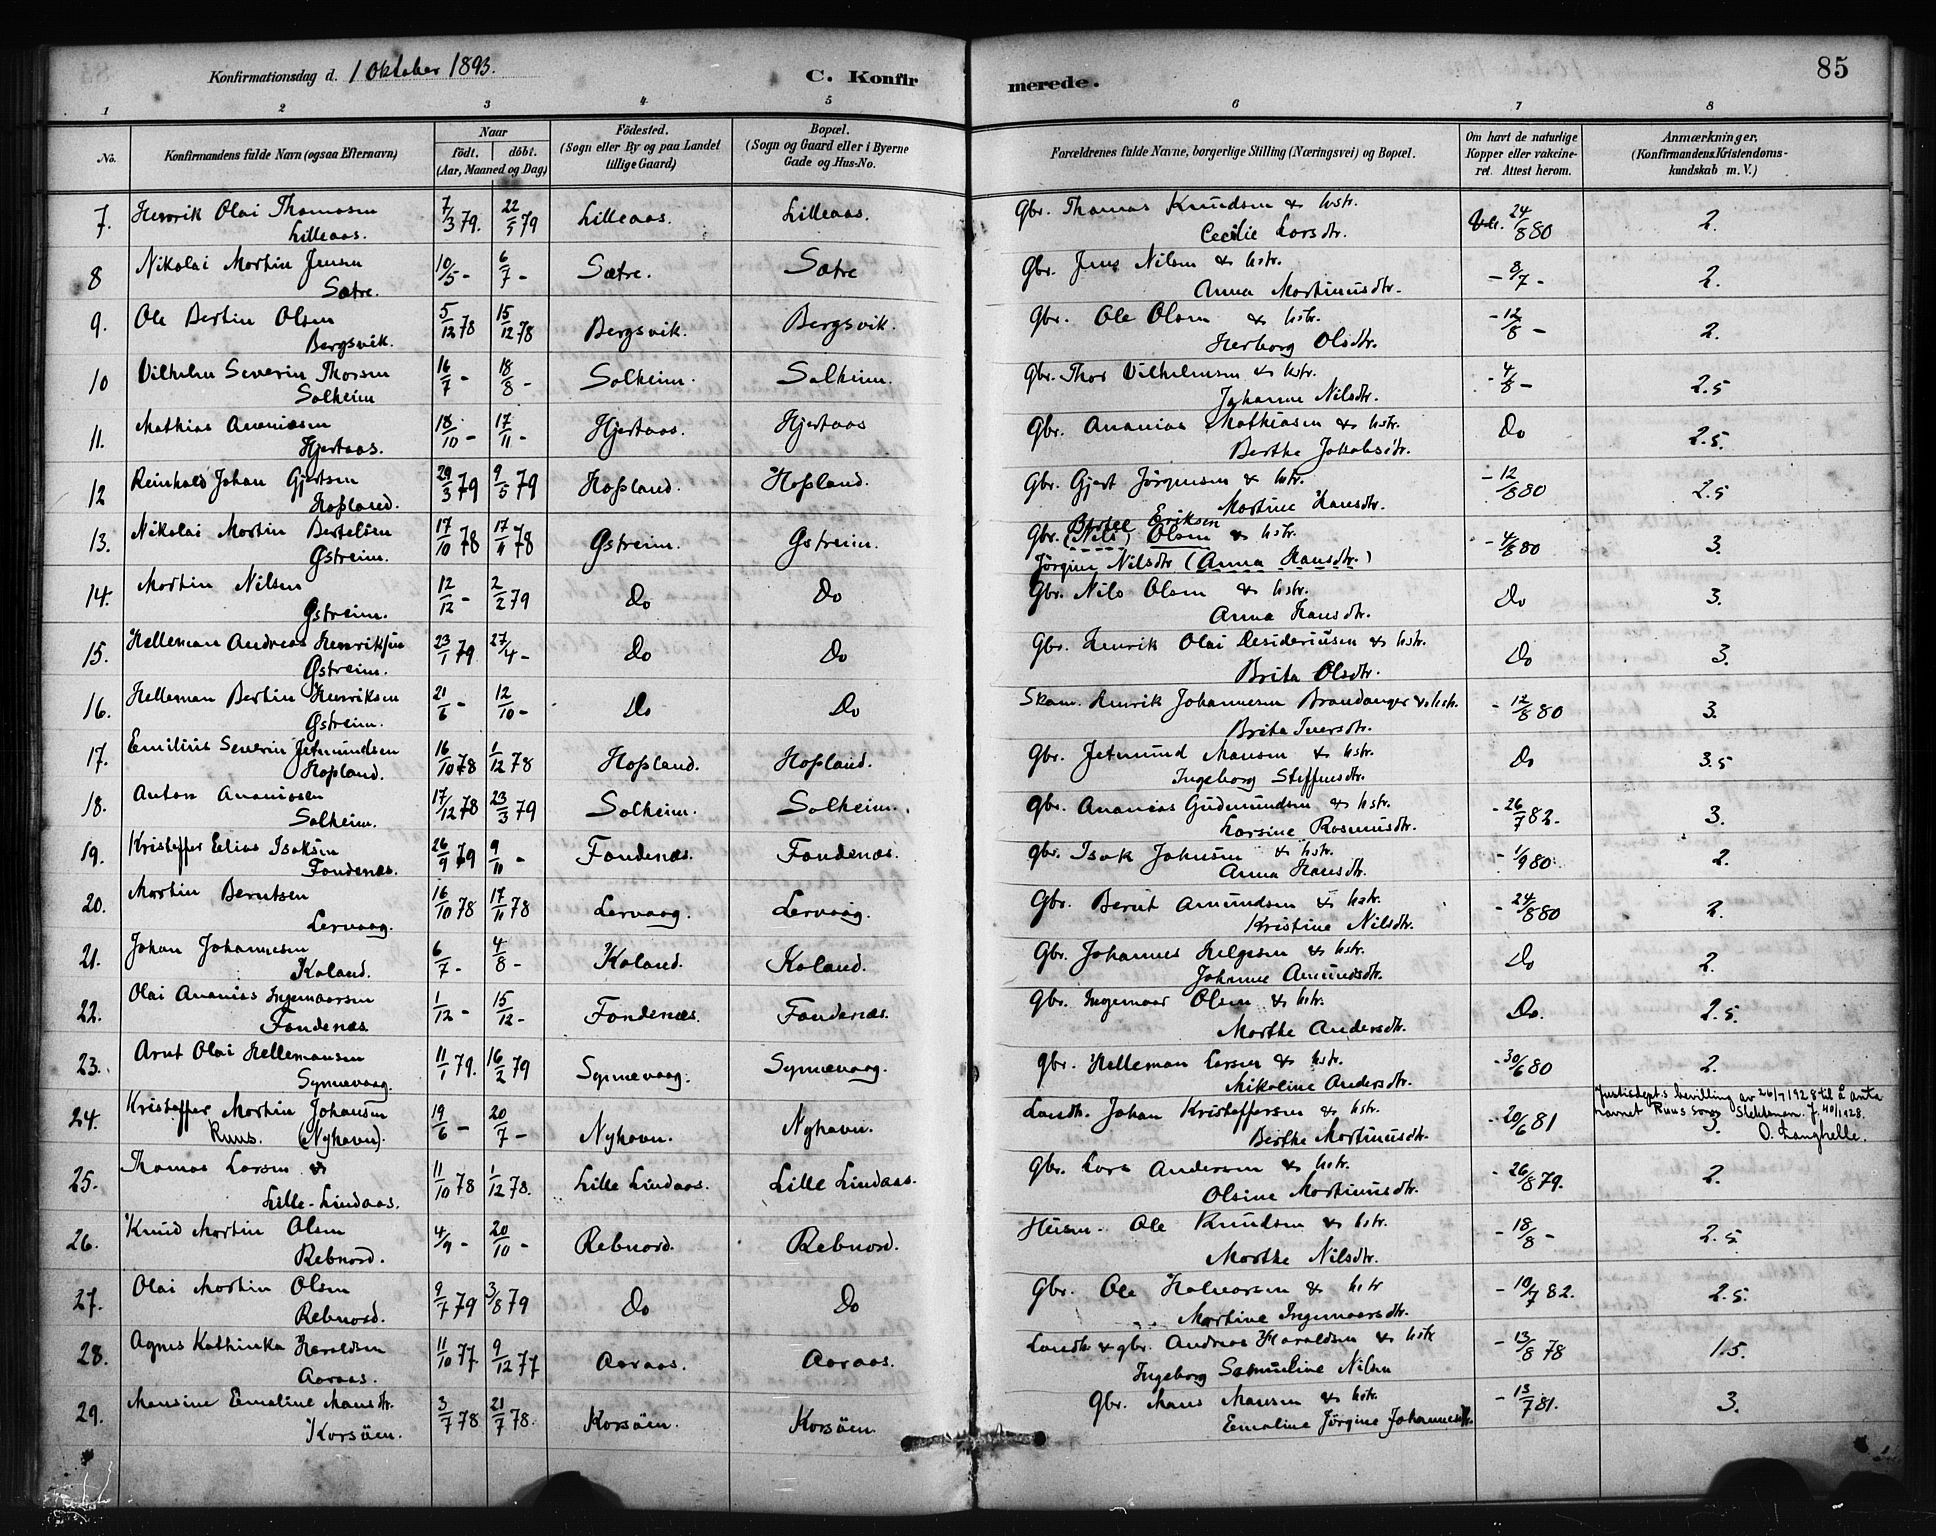 Konfirmationsdag d. 1 Oktober 1893. C. Konfirmerede. 85
1 2 3 4 5 6 7 8
No. | Konfirmandens fulde Navn (ogsaa Efternavn) | Naar født. døbt. (Aar, Maaned og Dag) | Fødested. (Sogn eller By og paa Landet tillige Gaard) | Bopæl. (Sogn og Gaard eller i Byerne Gade og Hus-No.) | Forældrenes fulde Navne, borgerlige Stilling (Næringsvei) og Bopæl. | Om havt de naturlige Kopper eller vakcineret. Attest herom. | Anmærkninger, (Konfirmandens Kristendomskundskab m. V.)
7. Henrik Olai Thomasen Lilleaas. 7/3 79. 22/5 79 Lilleaas. Lilleaas. Gbr. Thomas Knudsen & hstr. Cecilie Larsdtr. 24/8 80 2.
8 Nikolai Martin Jensen Sætre. 10/5 - 6/7 - Sætre. Sætre Gbr. Jens Nilsen & hstr. Anna Martinusdtr. - 8/7 - 2.
9. Ole Bertin Olsen Bergsvik. 5/12 78 15/12 78 Bergsvik. Bergsvik. Gbr. Ole Olsen & hstr. Herborg Olsdtr. - 12/8 - 2.
10 Vilhelm Severin Thorsen Solheim 16/7 - 18/8 - Solheim. Solheim. Gbr. Thor Vilhelmsen & hstr. Johanne Nilsdtr. - 4/8 - 2.5
11. Mathias Ananiasen Hjertaas. 18/10 - 17/11 - Hjertaas. Hjertaas Gbr. Ananias Mathiasen & hstr. Berthe Jakobsdtr. Do 2.5.
12 Reinhald Johan Gjertsen Hopland. 29/3 79 9/5 79 Hopland. Hopland. Gbr. Gjert Jörgensen & hstr. Martine Hansdtr. - 12/8 80 2.5
13. Nikolai Martin Bertelsen Østreim. 17/10 78 17/11 78 Østreim. Østreim. Gbr. Bertel Eriksen (Nils) Olsen & hstr. Jörgine Nilsdtr (Anna Hansdtr.) - 4/8 80 3.
14. Martin Nilsen Østreim. 12/12 - 2/2 79 Do Do Gbr. Nils Olsen & hstr. Anna Hansdtr. Do 3.
15. Helleman Andreas Henriksen Østreim. 23/1 79. 27/4 - Do Do Gbr. Henrik Olai Desideriusen & hstr. Brita Olsdtr. Do 3.
16. Helleman Bertin Henriksen Østreim. 21/6 - 12/10 - Do Do Skom. Henrik Johannesen Brandanger & hstr. Brita Iversdtr. - 12/8 80 3.
17. Emilius Severin Jetmundsen Hopland. 16/10 78 1/12 78 Hopland. Hopland. Gbr. Jetmund Mansen & hstr. Ingeborg Steffensdtr. Do 3.5
18. Anton Ananiasen Solheim. 17/12 78 23/3 79 Solheim. Solheim. Gbr. Ananias Gudmundsen & hstr. Larsine Rasmusdtr. - 26/7 82. 3.
19. Kristoffer Elias Isaksen Fondenæs. 26/9 79 9/11 - Fondenæs. Fondenæs. Gbr. Isak Johnsen & hstr. Anna Hansdtr. - 1/9 80. 2.
20. Martin Berntsen Lervaag. 16/10 78 17/11 78 Lervaag. Lervaag. Gbr. Bernt Amundsen & hstr. Kristine Nilsdtr. - 24/8 80 2.
21. Johan Johannesen Kaland. 6/7 - 4/8 - Kaland. Kaland. Gbr. Johannes Helgesen & hstr. Johanne Amundsdtr. Do 2.
22. Olai Ananias Ingemaarsen Fondenæs 1/12 - 15/12 - Fondenæs. Fondenæs. Gbr. Ingemaar Olsen & hstr. Marthe Andersdtr. Do. 2.5.
23. Arnt Olai Hellemansen Synnevaag. 11/1 79. 16/2 79 Synnevaag. Synnevaag. Gbr. Helleman Larsen & hstr. Nikoline Andersdtr. - 30/6 80 2.
24. Kristoffer Martin Johansen Ruus. (Nyhavn). 19/6 - 20/7 - Nyhavn. Nyhavn. Landh. Johan Kristoffersen & hstr. Berthe Martinusdtr. - 20/6 81 3.
Justisdept.s bevilling av 26/1 1928 til å anta
navnet Ruus som slektsnavn. J. 40/1928.
O. Langhelle.
25. Thomas Larsen Lille-Lindaas. 11/10 78 1/12 78. Lille Lindaas. Lille Lindaas. Gbr. Lars Andersen & hstr. Olsine Martinusdtr. - 26/8 79. 2.
26. Knud Martin Olsen Rebnord. 4/9 - 20/10 - Rebnord. Rebnord. Husm. Ole Knudsen & hstr. Marthe Nilsdtr. - 18/8 - 2.5
27. Olai Martin Olsen Rebnord. 9/7 79 3/8 79 Do Do Gbr. Ole Halvorsen & hstr Martine Ingemaarsdtr. - 10/7 82. 2.5.
28. Agnes Kathinka Haraldsen Aaraas. 11/10 77 9/12 77 Aaraas. Aaraas. Landh. & gbr. Andreas Haraldsen & hstr Ingeborg Samueline Nilsen - 13/8 78 1.5.
29. Mansine Emaline Mansdtr. Korsöen. 3/7 78 21/7 78. Korsöen. Korsöen. Gbr. Mans Mansen & hstr. Emaline Jörgine Johannesdtr. - 13/7 81. 3.